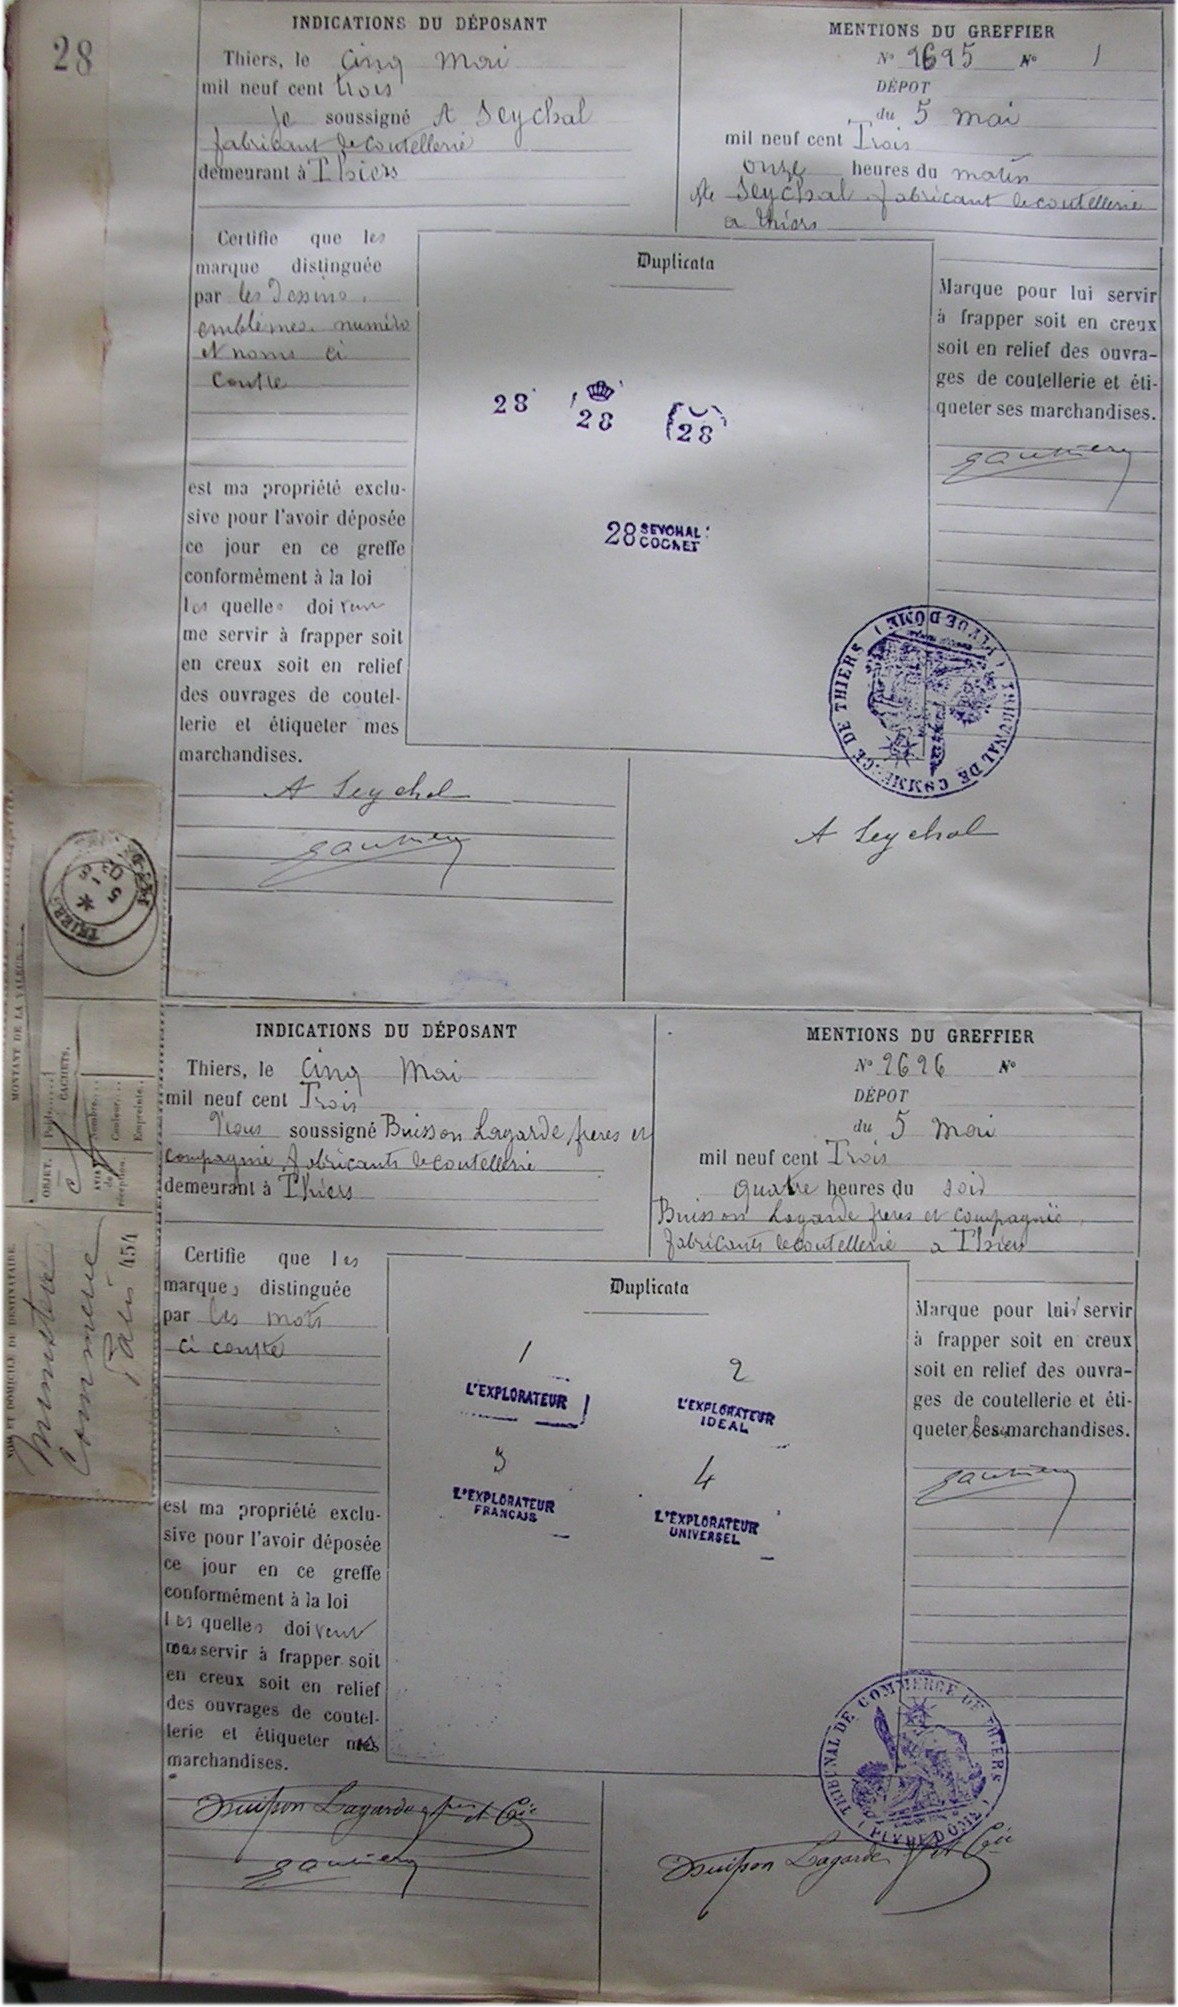 28
INDICATIONS DU DÉPOSANT
Thiers, le cinq Mai
mil neuf cent trois
Je soussigné A Seychal
fabricant de coutellerie
demeurant à Thiers
MENTIONS DU GREFFIER
N° 2695 N° 1
DÉPOT
du 5 mai
mil neuf cent Trois
onze heures du matin
Seychal fabricant de coutellerie
a thiers
Certifie que les
marque distinguée
par les Dessins,
emblèmes, numéro
et noms ci
contre
est ma propriété exclu-
sive pour l'avoir déposée
ce jour en ce greffe
conformément à la loi
les quelles doivent
me servir à frapper soit
en creux soit en relief
des ouvrages de coutel-
lerie et étiqueter mes
marchandises.
A Seychal
Duplicata
28 28 28
28 SEYCHAL
COGNET
Marque pour lui servir
à frapper soit en creux
soit en relief des ouvra-
ges de coutellerie et éti-
queter ses marchandises.
TRIBUNAL DE COMMERCE DE THIERS
(PUY DE DOME)
A Seychal
THIERS
MONTANT DE LA VALEUR
OBJET.
CACHETS.
Nombre
Couleur
Empreinte
réception.
NOM ET DOMICILE DU DESTINATAIRE
Ministre
Commerce
Paris 454
INDICATIONS DU DÉPOSANT
Thiers, le cinq Mai
mil neuf cent Trois
Nous soussigné Buisson Lagarde frères et
compagnie fabricants de coutellerie
demeurant à Thiers
MENTIONS DU GREFFIER
N° 2696 N°
DÉPOT
du 5 Mai
mil neuf cent Trois
quatre heures du soir
Buisson Lagarde freres et compagnie,
fabricants de coutellerie a Thiers
Certifie que les
marques distinguée
par les mots
ci contre
est ma propriété exclu-
sive pour l'avoir déposée
ce jour en ce greffe
conformément à la loi
les quelles doivent
servir à frapper soit
en creux soit en relief
des ouvrages de coutel-
lerie et étiqueter
marchandises.
Buisson Lagarde frères et Cie
Duplicata
1
L'EXPLORATEUR
2
L'EXPLORATEUR
IDEAL
3
L'EXPLORATEUR
FRANCAIS
4
L'EXPLORATEUR
UNIVERSEL
Marque pour lui servir
à frapper soit en creux
soit en relief des ouvra-
ges de coutellerie et éti-
queter ses marchandises.
TRIBUNAL DE COMMERCE DE THIERS
(PUY DE DOME)
Buisson Lagarde fr et Cie